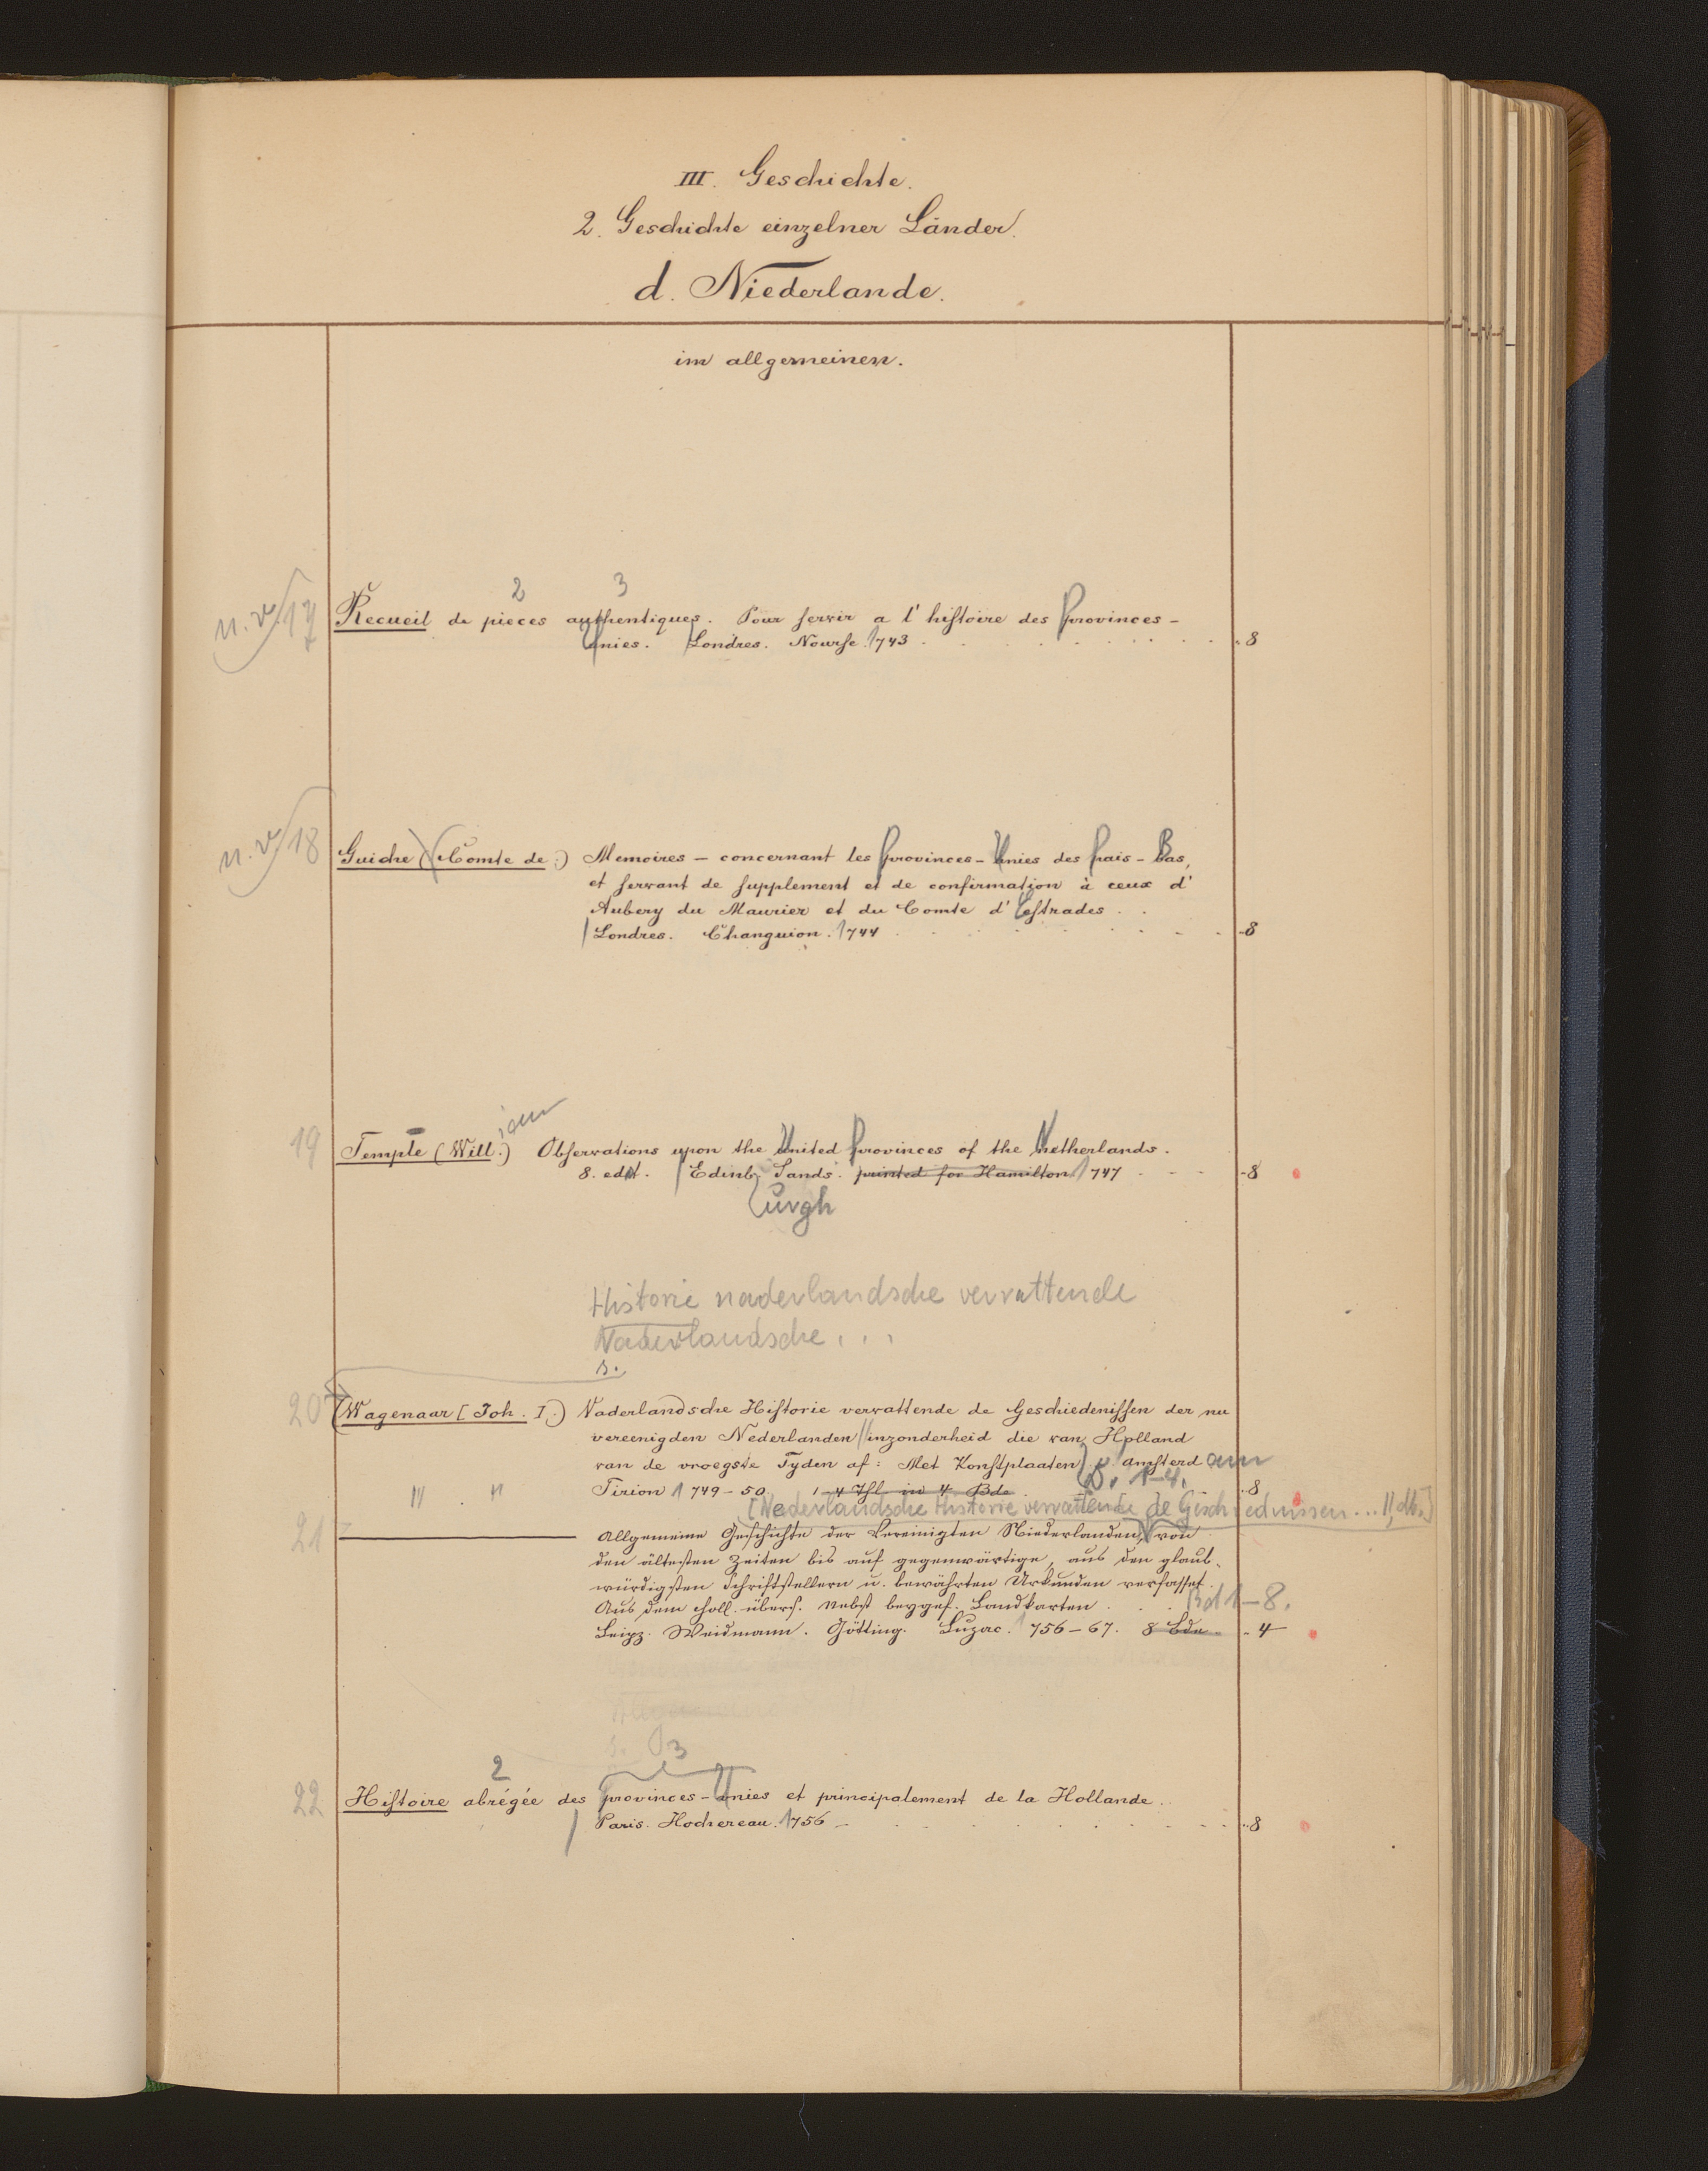 III. Geschichte.
2. Geschichte einzelner Länder.
d. Niederlande.
im allgemeinen.
2 3
n. v. 17 Recueil de pieces authentiques. Pour servir a l' histoire des Provinces -
Unies. Londres. Nourse. 1743 8
n. v. 18 Guiche (Comte de:) Memoires - concernant les Provinces - Unies des Pais - Bas,
et servant de supplement et de confirmation à ceux d'
Aubery du Maurier et du Comte d' Estrades
Londres. Changuion. 1744 8
iam
19 Temple (Will.) Observations upon the United Provinces of the Netherlands.
8. edit. Edinb. Sands. printed for Hamilton 1747 8
urgh
Historie naderlandsche vervattende
Naderlandsche ...
s.
20 (Wagenaar [Joh. I.) Vaderlandsche Historie vervattende de Geschiedenissen der nu
vereenigden Nederlanden inzonderheid die van Holland
van de vroegste Tyden af: Met Konstplaaten Amsterd am
1-4.
Tirion 1749-50 1-4 Thl in 4 Bde 8
[Nederlandsche Historie vervattende de Geschiednissen ... dt.]
21 Allgemeine Geschichte der Vereinigten Niederlanden, von
den ältesten Zeiten bis auf gegenwärtige, aus den glaub-
würdigsten Schriftstellern u. bewährten Urkunden verfasset.
Aus dem holl. übers. Nebst beygef. Landkarten Bd 1-8.
Leipz. Weidmann. Götting. Luzac. 1756-67. 8 Bde 4
s. 3
2
22 Histoire abrégée des Provinces - Unies et principalement de la Hollande.
Paris. Hochereau. 1756 8